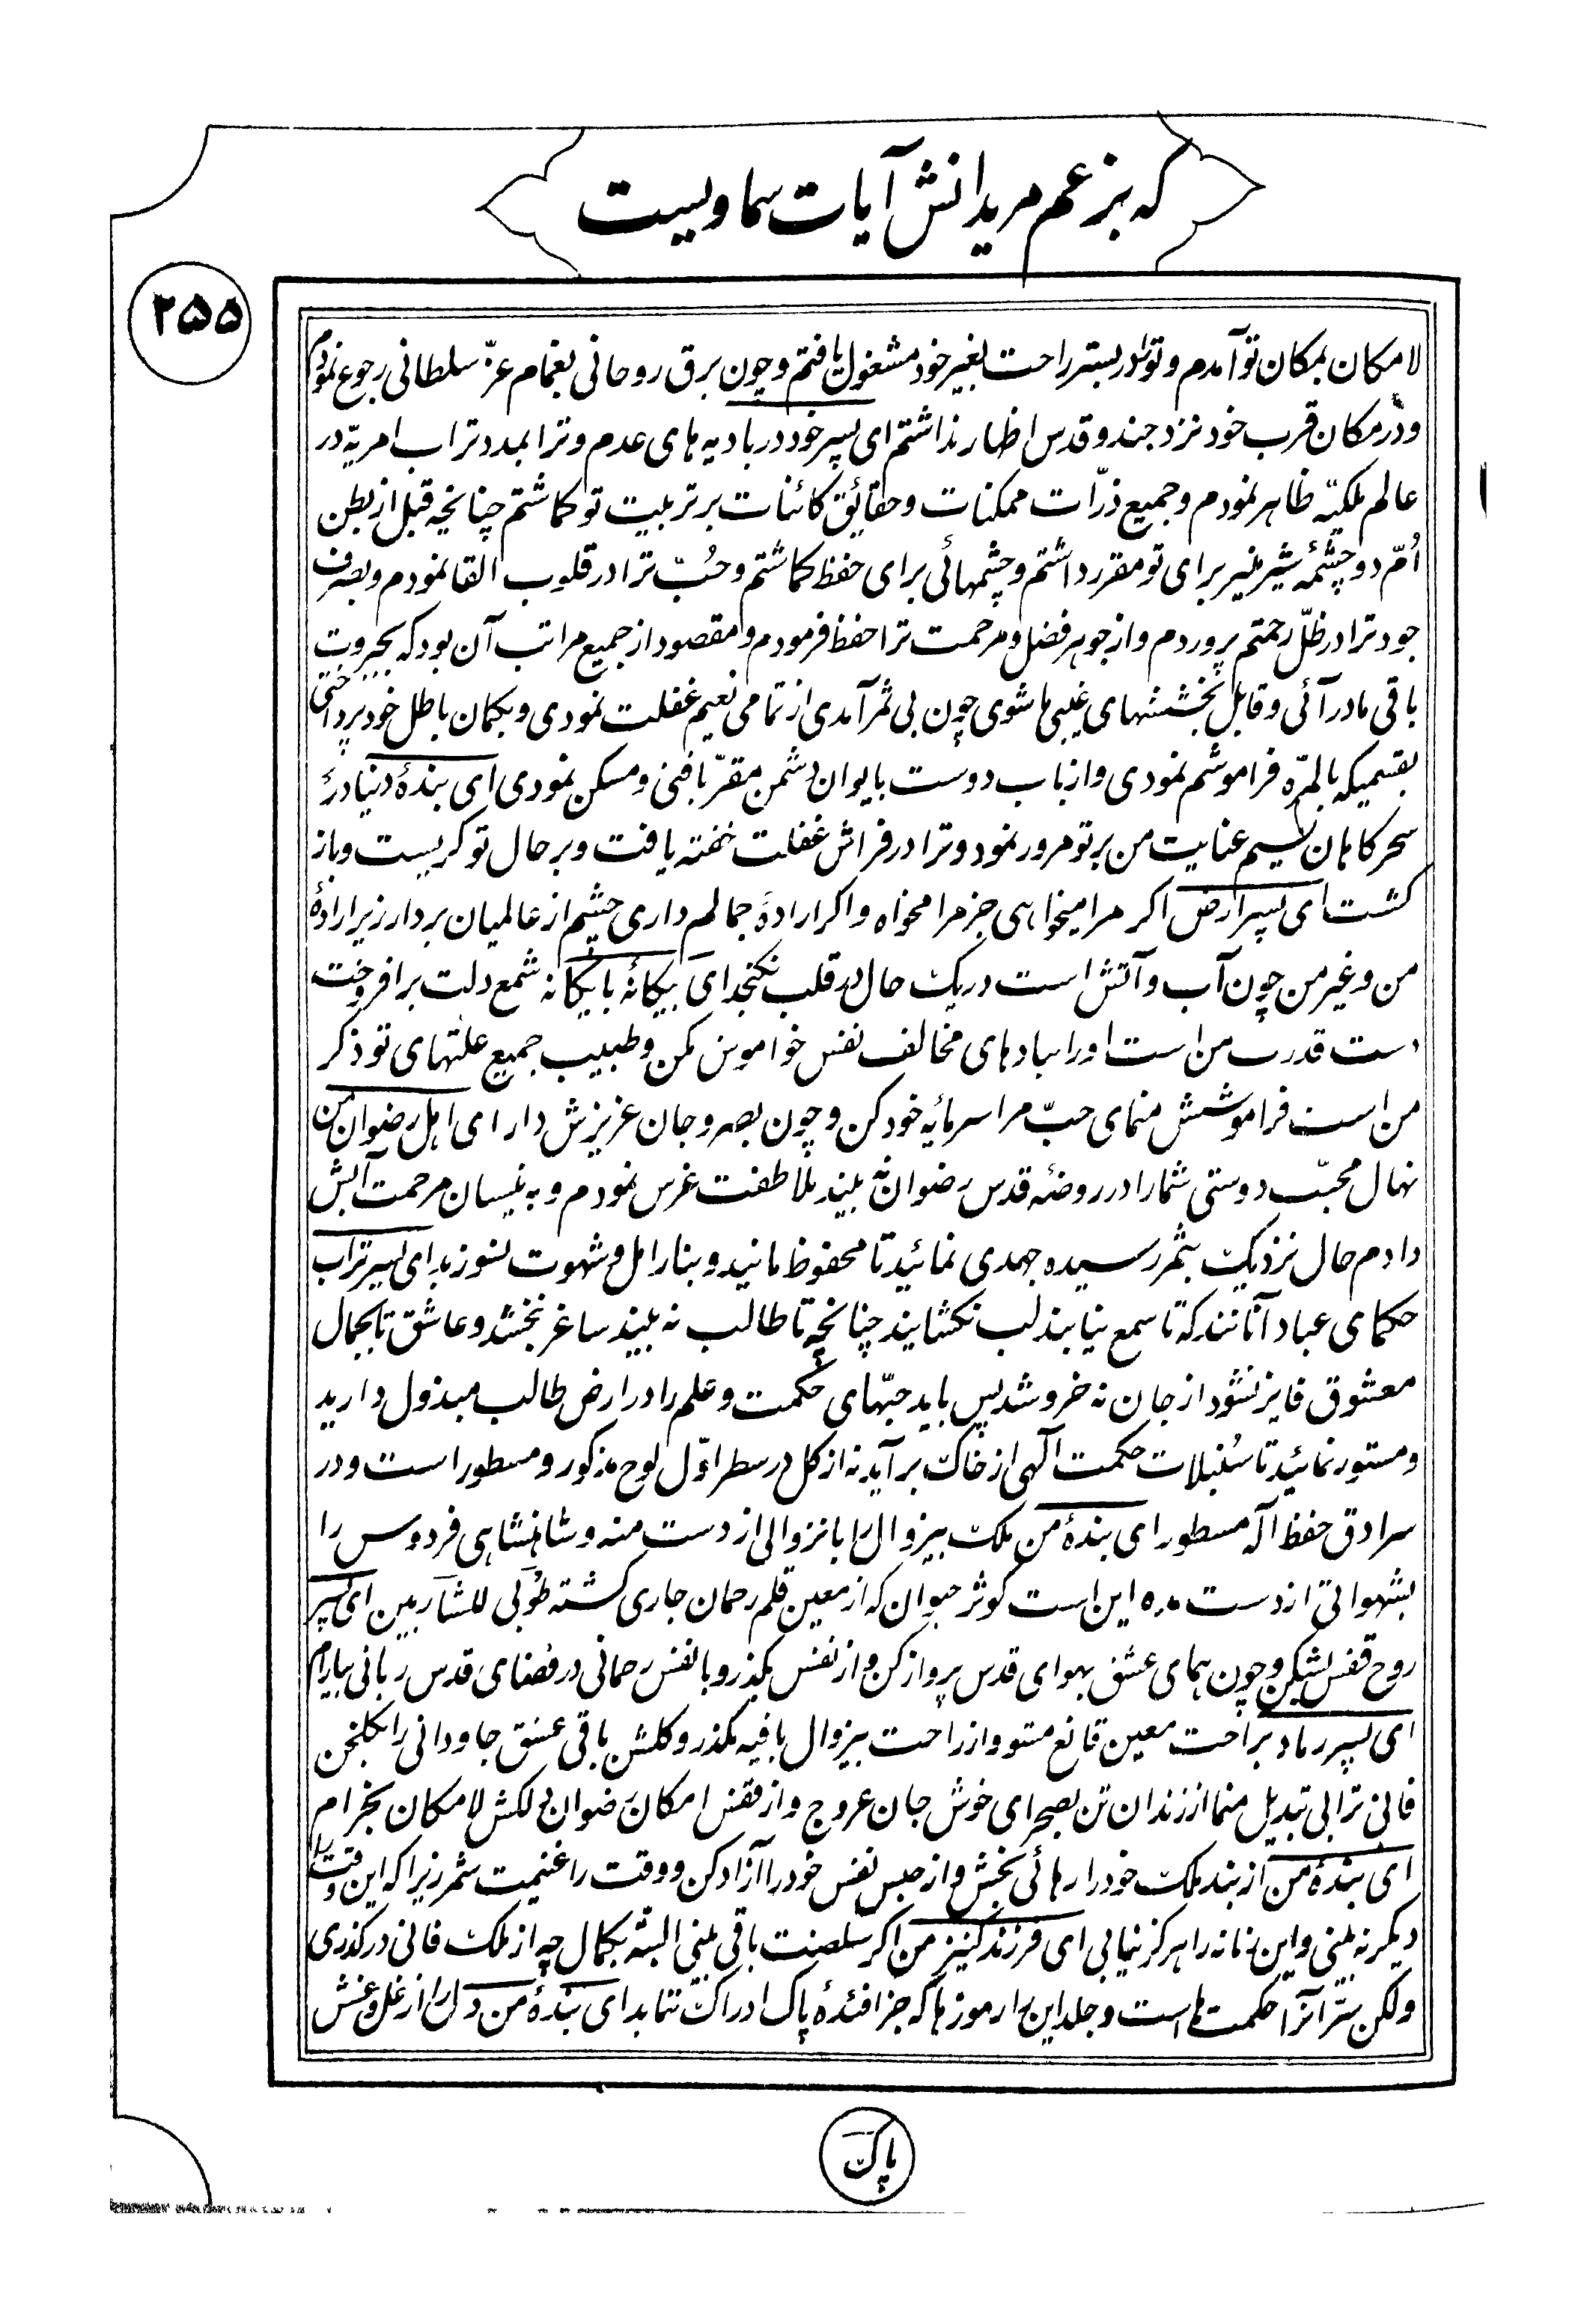 که بزعم مریدانش آیات سماویست
۲۵۵
لامکان بمکان تو آمدم و تو را در بستر راحت بغیر خود مشغول یافتم و چون برق روحانی بغمام عزّ سلطانی رجوع نمودم
و در مکان قرب خود نزد جنود قدس اظهار نداشتم ای پسر خود در بادیه های عدم و ترا بمدد تراب امریّه در
عالم ملکیّه ظاهر نمودم و جمیع ذرّات ممکنات و حقائق کائنات بر تربیت تو گماشتم چنانچه قبل از بطن
اُمّ دو چشمه شیر منیر برای تو مقرر داشتم و چشمهائی برای حفظ گماشتم و حُبّ ترا در قلوب القا نمودم و بصرف
جود ترا در ظلّ رحمتم پروردم و از جوهر فضل و مرحمت ترا حفظ فرمودم و مقصود از جمیع مراتب آن بود که بجبروت
باقی ما درآئی و قابل بخششهای غیبی ما شوی چون بی ثمر آمدی از تمامی نعیم غفلت نمودی و بگمان باطل خود پرداختی
بقسمیکه بالمرّه فراموشم نمودی و از باب دوست بایوان دشمن مقرّ یافتی و مسکن نمودی ای بندۀ دنیا در
سحرگاهان نسیم عنایت من بر تو مرور نمود و ترا در فراش غفلت خفته یافت و بر حال تو گریست و باز
گشت ای پسر ارض اگر مرا میخواهی جز مرا مخواه و اگر ارادۀ جمالم داری چشم از عالمیان بردار زیرا ارادۀ
من و غیر من چون آب و آتش است در یک حال در قلب نگنجد ای بیگانۀ با یگانه شمع دلت برافروخت
دست قدرت من است او را ببادهای مخالف نفس خواموش مکن و طبیب جمیع علتهای تو ذکر
من است فراموشش منمای حبّ مرا سرمایه خود کن و چون بصر و جان عزیزش دار ای اهل رضوان من
نهال محبّت دوستی شمارا در روضه قدس رضوان به ید ملاطفت غرس نمودم و به نیسان مرحمت آبش
دادم حال نزدیک بثمر رسیده جهدی نمائید تا محفوظ مانید و بنار امل و شهوت نسوزید ای پسر تراب
حکمای عباد آنانند که تا سمع نیابند لب نگشایند چنانچه تا طالب نه بیند ساغر نبخشد و عاشق تا بجمال
معشوق فایز نشود از جان نه خروشد پس باید حبّهای حکمت و علم را در ارض طالب مبذول دارید
و مستور نمائید تا سُنبلات حکمت الهی از خاک برآید نه از گل در سطر اوّل لوح مذکور و مسطور است و در
سرادق حفظ اله مسطور ای بندۀ من ملک بیزوال را بانزوالی از دست منه و شاهنشاهی فردوس را
بشهواتی از دست مده این است کوثر حیوان که از معین قلم رحمان جاری گشته طُوبی للشاربین ای پسر
روح قفس بشکن و چون همای عشق بهوای قدس پرواز کن و از نفس بگذر و با نفس رحمانی در فضای قدس ربانی بیارام
ای پسر رماد براحت معین قانع مشو و از راحت بیزوال باقیه مگذر و گلشن باقی عشق جاودانی را بگلخن
فانی ترابی تبدیل منما از زندان تن بصحرای خوش جان عروج و از قفس امکان رضوان دلکش لامکان بخرام
ای بندۀ من از بند ملک خود را رهائی بخش و از حبس نفس خود را آزاد کن و وقت را غنیمت شمر زیرا که این وقت را
دیگر نه بینی و این زمانه را هرگز نیابی ای فرزند کنیز من اگر سلطنت باقی بینی البته بکمال چه از ملک فانی درگذری
ولکن ستر آنرا حکمت هاست و جلد این را رموزها که جز افئدۀ پاک ادراک ننماید ای بندۀ من دل را از غل و غش
پاک